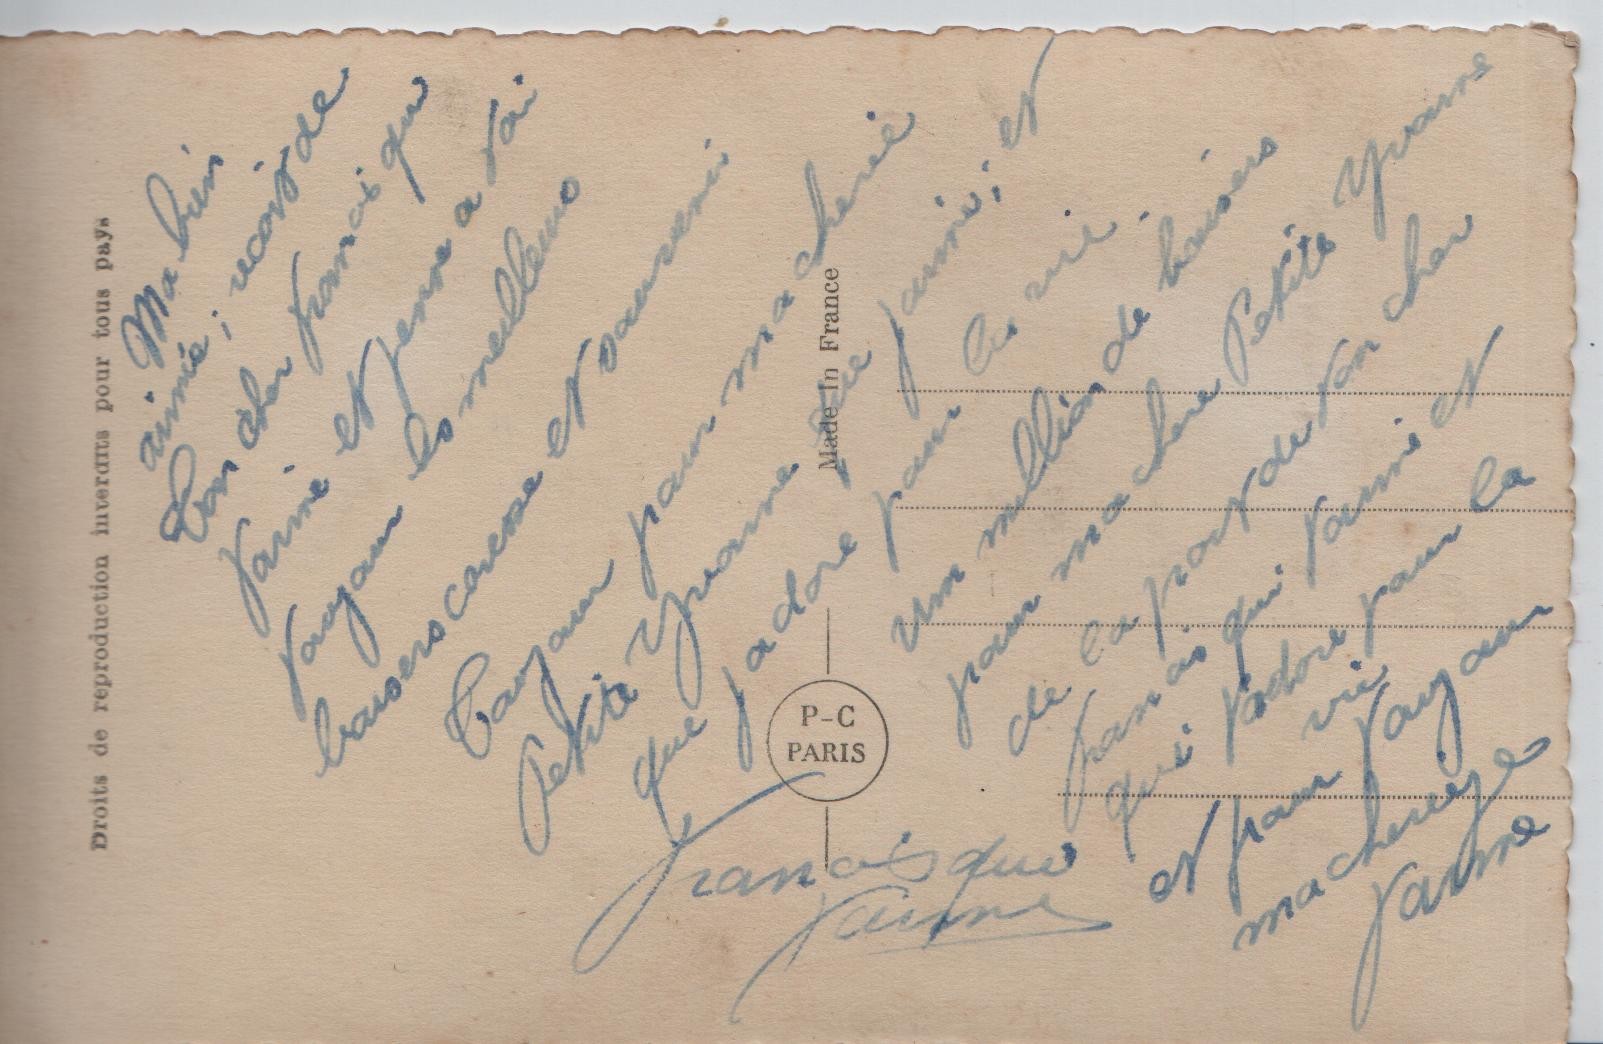 Ma bien
aimé, recois de
ton cher francois qui
t'aime et pense a toi
toujour les meilleurs
baisers caresse et souvenir
toujour pour ma cherie
Petite Yvonne que j'aime, et
que j'adore pour la vie.
un million de baisers
pour ma chere Petite Yvonne
de la part de ton cher
francois qui t'aime et
qui t'adore pour la
vie
et pour toujour
ma cherie je
t'aime
Francois qui
t'aime
Droits de reproduction interdits pour tous pays
Made in France
P-C
PARIS